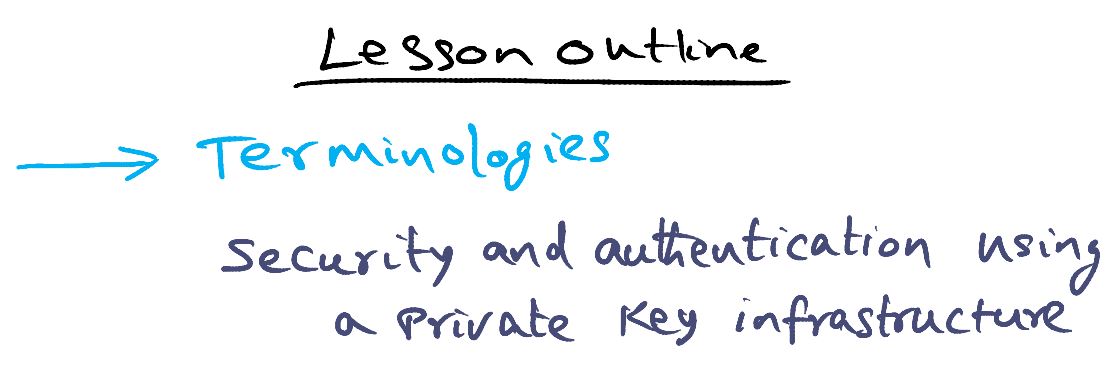 Lesson outline
Terminologies
Security and authentication using
a Private Key infrastructure